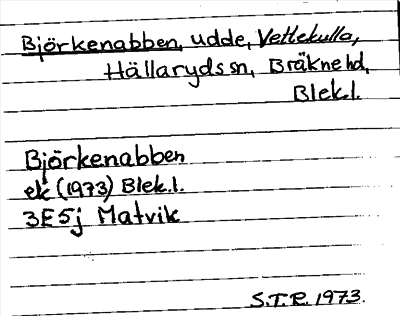 Björkenabben, udde, Vettekulla,
Hällaryds sn, Bräkne hd,
Blek.l.
Björkenabben
ek (1973) Blek.l.
3E5j Matvik
S.T.R. 1973.